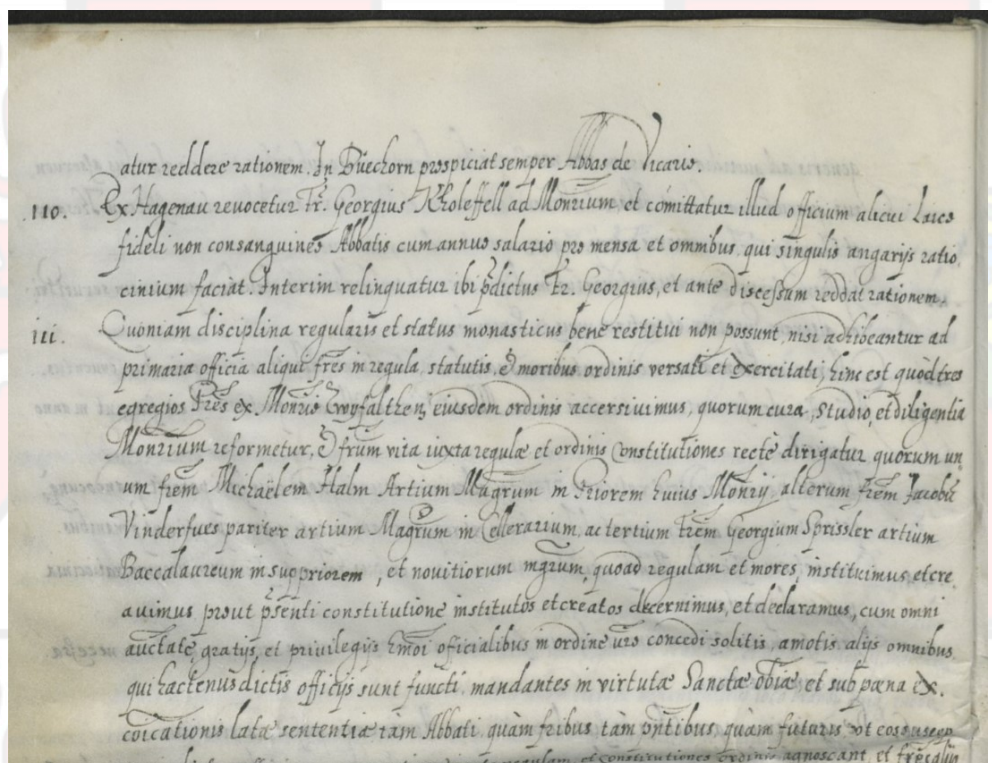 atur reddere rationem. In Buechorn prospiciat semper Abbas de Vicario.
110. Ex Hagenau reuocetur Fr. Georgius Kholeffell ad Monrium et cõmittatur illud officium alicui Laico
fideli non consanguineo Abbatis cum annuo salario pro mensa et omnibus, qui singulis angarijs ratio,
cinium faciat. Interim relinquatur ibi p̃dictus Fr. Georgius, et ante discessum reddat rationem.
111. Quoniam disciplina regularis et status monasticus bene restitui non possunt, nisi adhibeantur ad
primaria officia aliqui frẽs in regula, statutis, & moribus ordinis versati et exercitati, hinc est quòd tres
egregios Prẽs ex Monrio eiusdem ordinis accersiuimus, quorum cura, studio, et diligentia
Monrium reformetur, & frũm vita iuxta regulæ et ordinis constitutiones rectè dirigatur quorum un
um frẽm Michaëlem Halm Artium Magrum in Priorem huius Monrij, alterum frẽm Jacobũ
Vinderfues pariter artium Magrum in Cellerarium, ac tertium Frẽm Georgium Sprissler artium
Baccalaureum in suppriorem, et nouitiorum mgrum, quoad regulam et mores, instituimus et cre
auimus prout p̃senti constitutione institutos et creatos decernimus, et declaramus, cum omni
auctate, gratijs, et priuilegijs hmõi officialibus in ordine uro concedi solitis, amotis alijs omnibus
qui hactenus dictis officijs sunt functi, mandantes in virtute Sanctæ obiæ et sub pæna ex.
cõicationis latæ sententiæ tàm Abbati quàm fribus tàm pñtibus, quàm futuris vt eos suscep
regulam, et constitutiones ordinis agnoscant, et